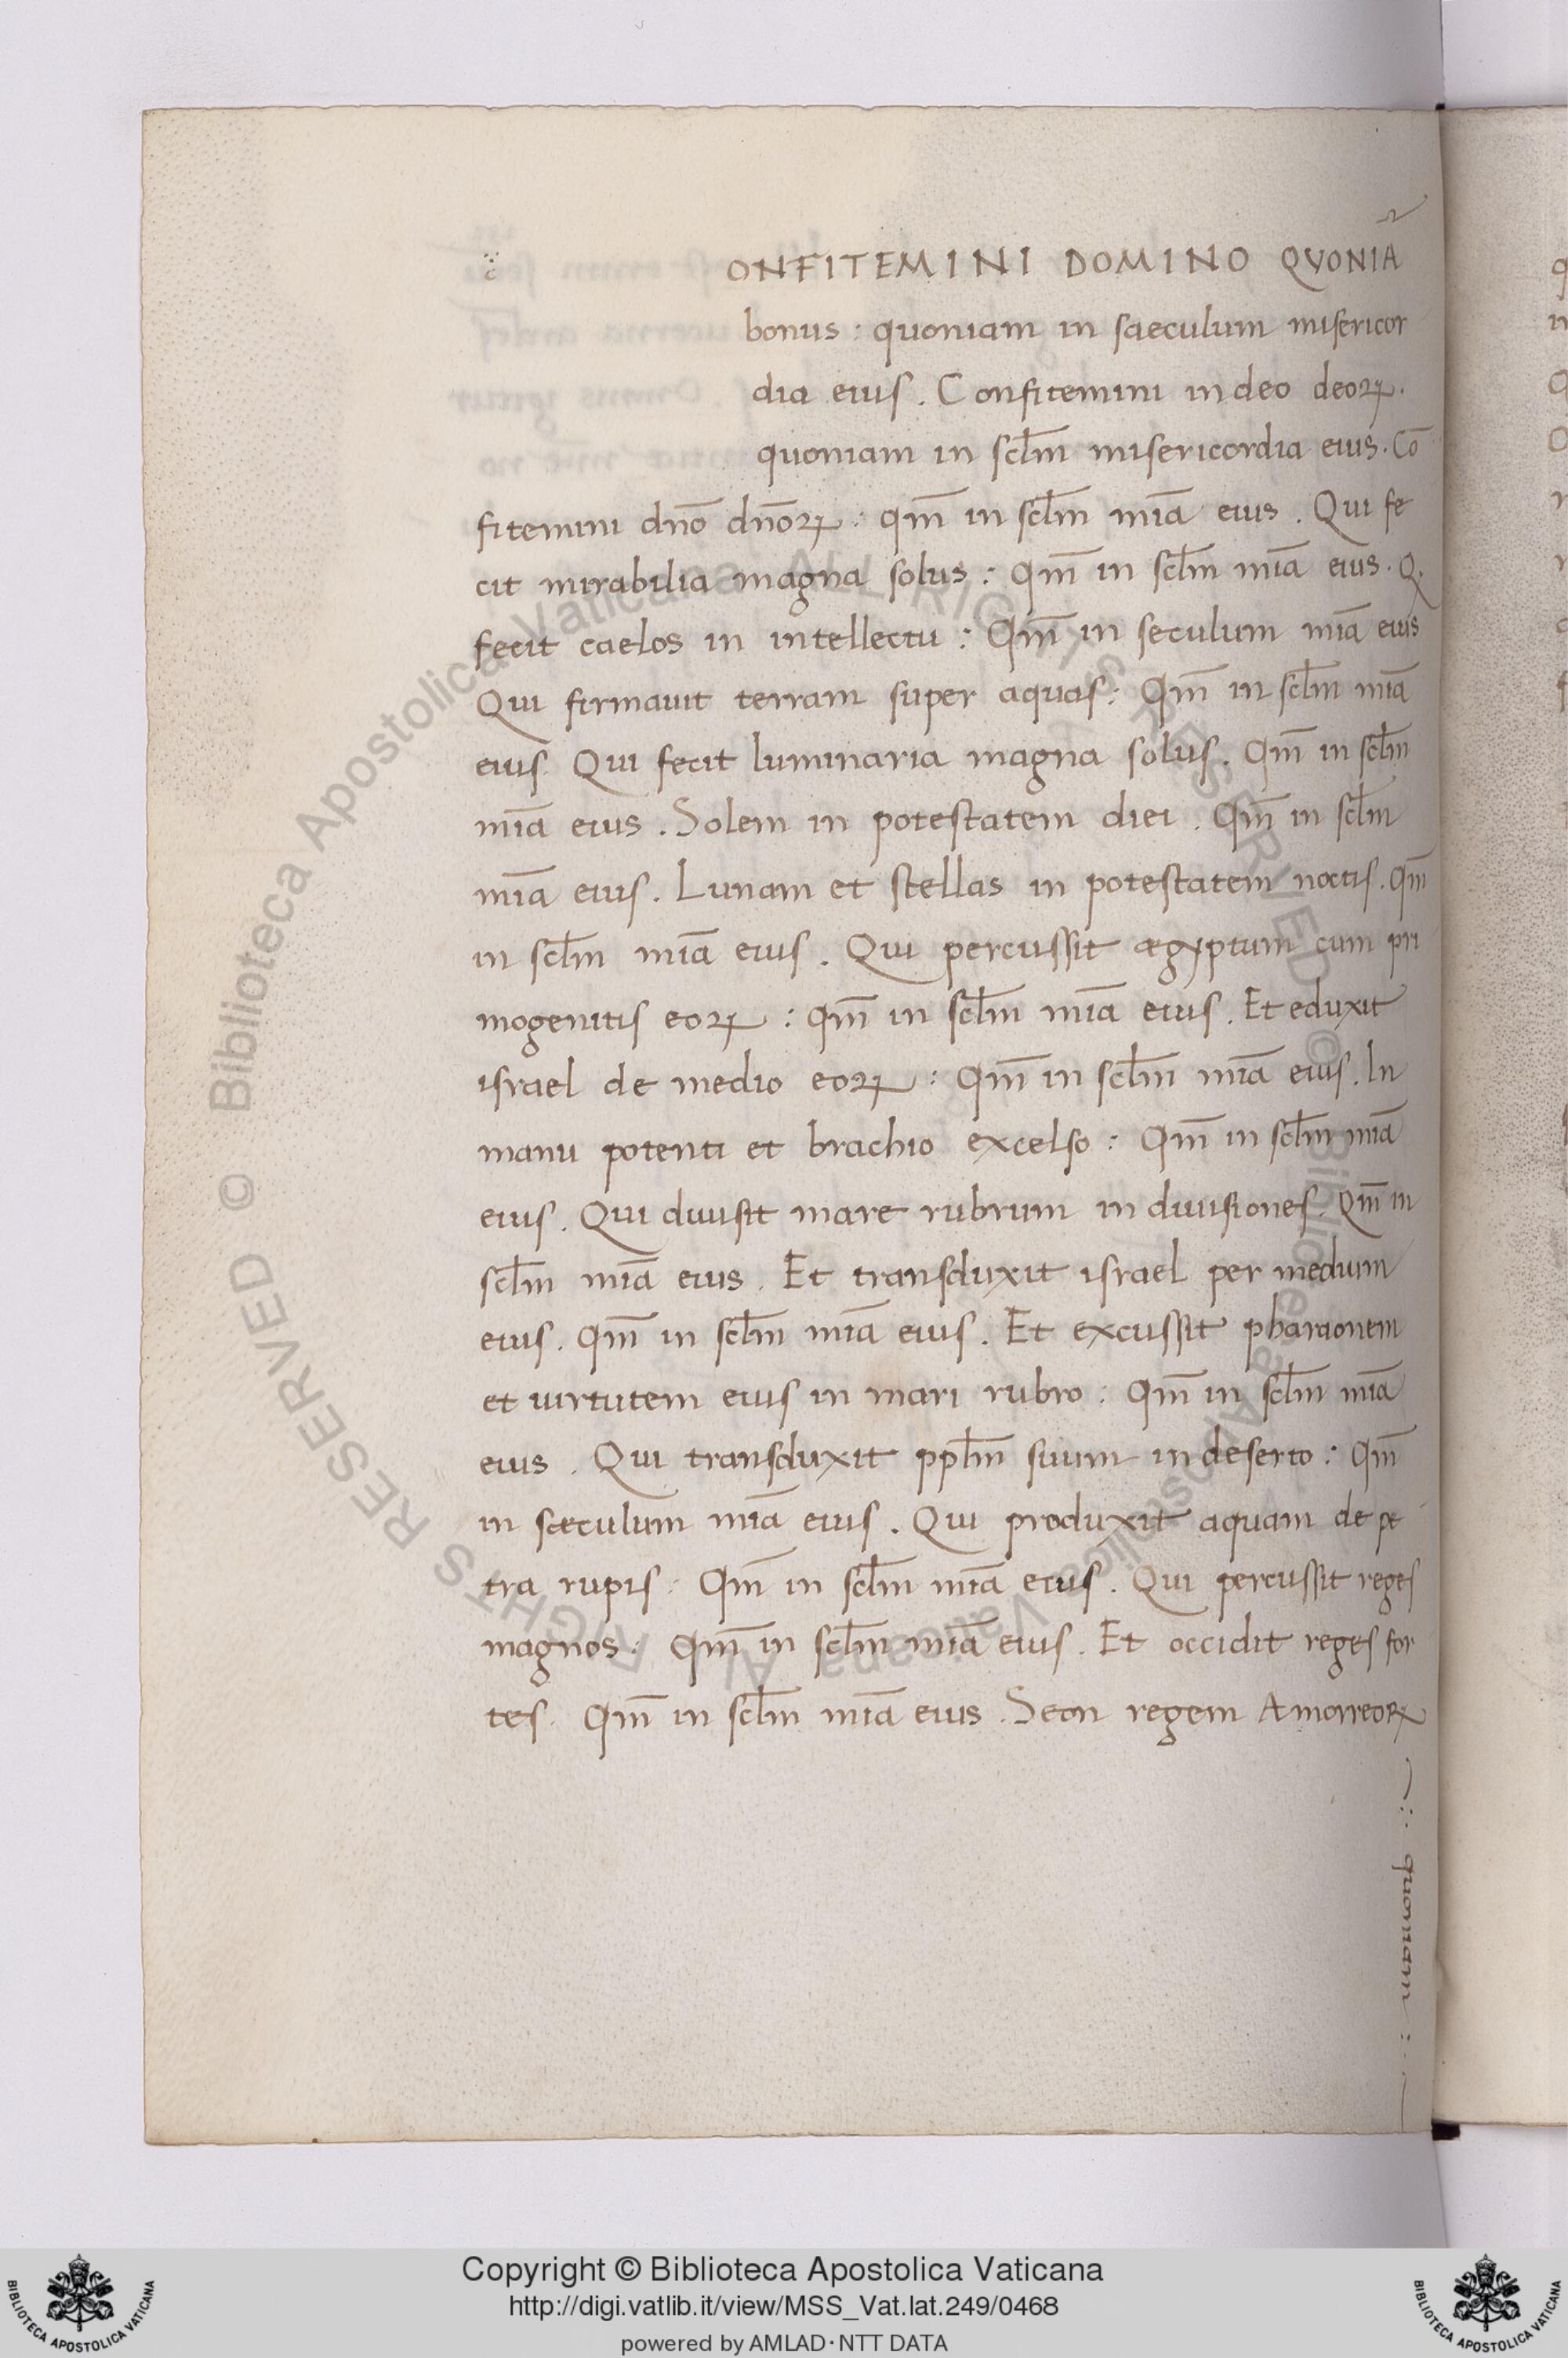 c ONFITEMINI DOMINO QVONIĀ
bonus : quoniam in saeculum misericor
dia eius . Confitemini in deo deoꝝ .
quoniam in scl̄m misericordia eius . Cō
fitemini dn̄o dn̄oꝝ : qm̄ in scl̄m mīa eius . Qui fe
cit mirabilia magna solus : Qm̄ in scl̄m mīa eius . Q.
fecit caelos in intellectu : Qm̄ in seculum mīa eius
Qui firmauit terram super aquas : Qm̄ in scl̄m mīa
eius . Qui fecit luminaria magna solus . Qm̄ in scl̄m
mīa eius . Solem in potestatem diei . Qm̄ in scl̄m
mīa eius . Lunam et stellas in potestatem noctis . Qm̄
in scl̄m mīa eius . Qui percussit ægyptum cum pri
mogenitis eoꝝ : qm̄ in scl̄m mīa eius . Et eduxit
israel de medio eoꝝ : Qm̄ in scl̄m mīa eius . In
manu potenti et brachio excelso : Qm̄ in scl̄m mīa
eius . Qui diuisit mare rubrum in diuisiones . Qm̄ in
scl̄m mīa eius . Et transduxit israel per medium
eius . Qm̄ in scl̄m mīa eius . Et excussit pharaonem
et uirtutem eius in mari rubro : Qm̄ in scl̄m mīa
eius . Qui transduxit ppl̄m suum in deserto : Qm̄
in sæculum mīa eius . Qui produxit aquam de pe
tra rupis : Qm̄ in scl̄m mīa eius . Qui percussit reges
magnos : Qm̄ in scl̄m mīa eius . Et occidit reges for
tes . Qm̄ in scl̄m mīa eius . Seon regem Amorreoꝝ
quoniam
© Biblioteca Apostolica Vaticana ALL RIGHTS RESERVED © Biblioteca Apostolica Vaticana ALL RIGHTS RESERVED
Copyright © Biblioteca Apostolica Vaticana
http://digi.vatlib.it/view/MSS_Vat.lat.249/0468
powered by AMLAD·NTT DATA
BIBLIOTECA APOSTOLICA VATICANA
BIBLIOTECA APOSTOLICA VATICANA